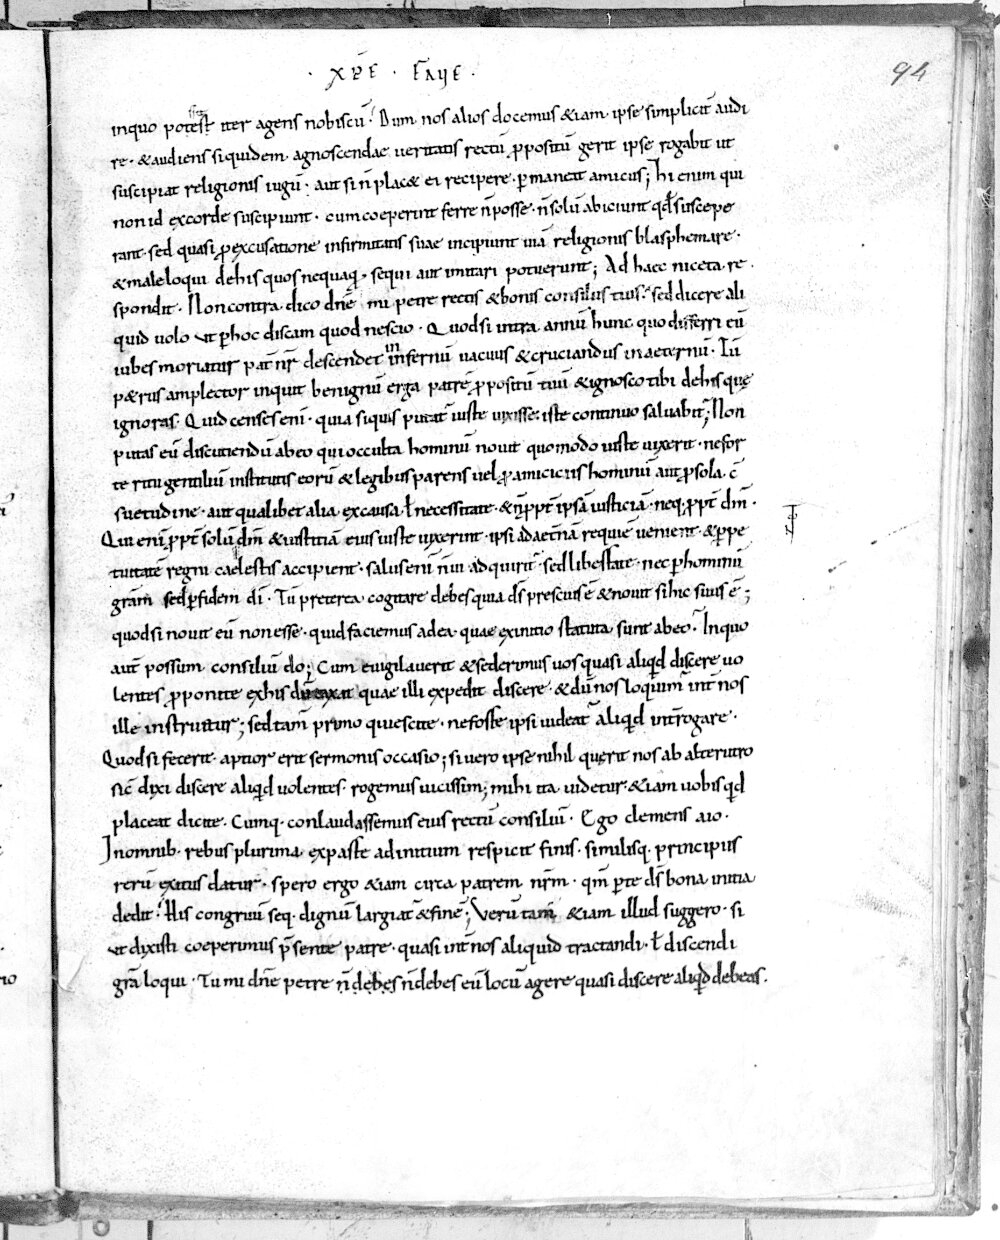 · XPE · FAUE ·
94
inquo potest iter agens nobiscū. Dum nos alios docemus &iam ipse simplicit̄ audi
re · &audiens siquidem agnoscendae ueritatis rectū p̄positū gerit ipse rogabit ut
suscipiat religionis iugū · aut si n̄ plac& ei recipere · pmaneat amicus; Hi enim qui
non id excorde suscipiunt · cum coeperint ferre n̄ posse · n̄ solū abiciunt qđ suscepe
rant · sed quasi p̄ excusatione infirmitatis suae incipiunt uiā religionis blasphemare ·
& male loqui dehis quos nequaq̄ · sequi aut imitari potuerunt; Ad haec niceta re
spondit · Non contra dico dn̄e mi petre rectis & bonis consiliis tuis · sed dicere ali
quid uolo ut phoc discam quod nescio · Quodsi intra annū hunc quo differri eū
iubes moriatur pat̄ nr̄ descendet in infernū uacuus & cruciandus in aeternū · Tū
p&rus amplector inquit benignū erga patrē p̄positū tuū & ignosco tibi dehis quę
ignoras · Quid censes enī · quia siquis putat̄ iuste uixisse · iste continuo saluabit̄; Non
putas eū discutiendū abeo qui occulta hominū nouit quomodo iuste uixerit · nefor
te ritu gentiliū institutis eorū & legibus parens uel p̄ amiciciis hominū aut psola c̄
suetudine · aut qualibet alia excausa ł necessitate · & n̄ ppt̄ ipsā iusticiā neq; ppt̄ dm̄ ·
Qui enī ppt̄ solū dm̄ & iustitiā eius iuste uixerint · ipsi ad aet̄nā requiē uenient · & ppe
tuitatē regni caelestis accipient · salus enī n̄ ui adquirit̄ · sed libertate · nec phominū
gr̄am sed pfidem dī · Tū preterea cogitare debes quia ds̄ prescius ē & nouit si hic suus ē;
quodsi nouit eū non esse · quid faciemus ad ea quae exinitio statuta sunt abeo? Inquo
aut̄ possum consiliū do; Cum euigilauerit & sederimus uos quasi aliqđ discere uo
lentes p̄ponite exhis quae illi expedit discere · & dū nos loquim̄ int̄ nos
ille instruitur; sed tam̄ primo quiescite · neforte ipsi uideat̄ aliqđ int̄rogare ·
Quodsi fecerit · aptior erit sermonis occasio; si uero ipse nihil querit nos ab alterutro
sic̄ dixi discere aliqđ uolentes · rogemus uicissim; mihi ita uidetur · &iam uobis qđ
placeat dicite · Cumq · conlaudassemus eius rectū consiliū · Ego clemens aio ·
Inomnib · rebus plurima ex parte ad initium respicit finis · similisq · principiis
rerū exitus datur · spero ergo &iam circa patrem nr̄m · qm̄ pte ds̄ bona initia
dedit · His congruū seq · dignū largiat̄ & finē; Verū tam̄ &iam illud suggero · si
ut dixisti coeperimus p̄sente patre · quasi int̄ nos aliquid tractandi · ł discendi
gr̄a loqui · Tu mi dn̄e petre n̄ debes n̄ debes eū locū agere quasi discere aliqđ debeas ·